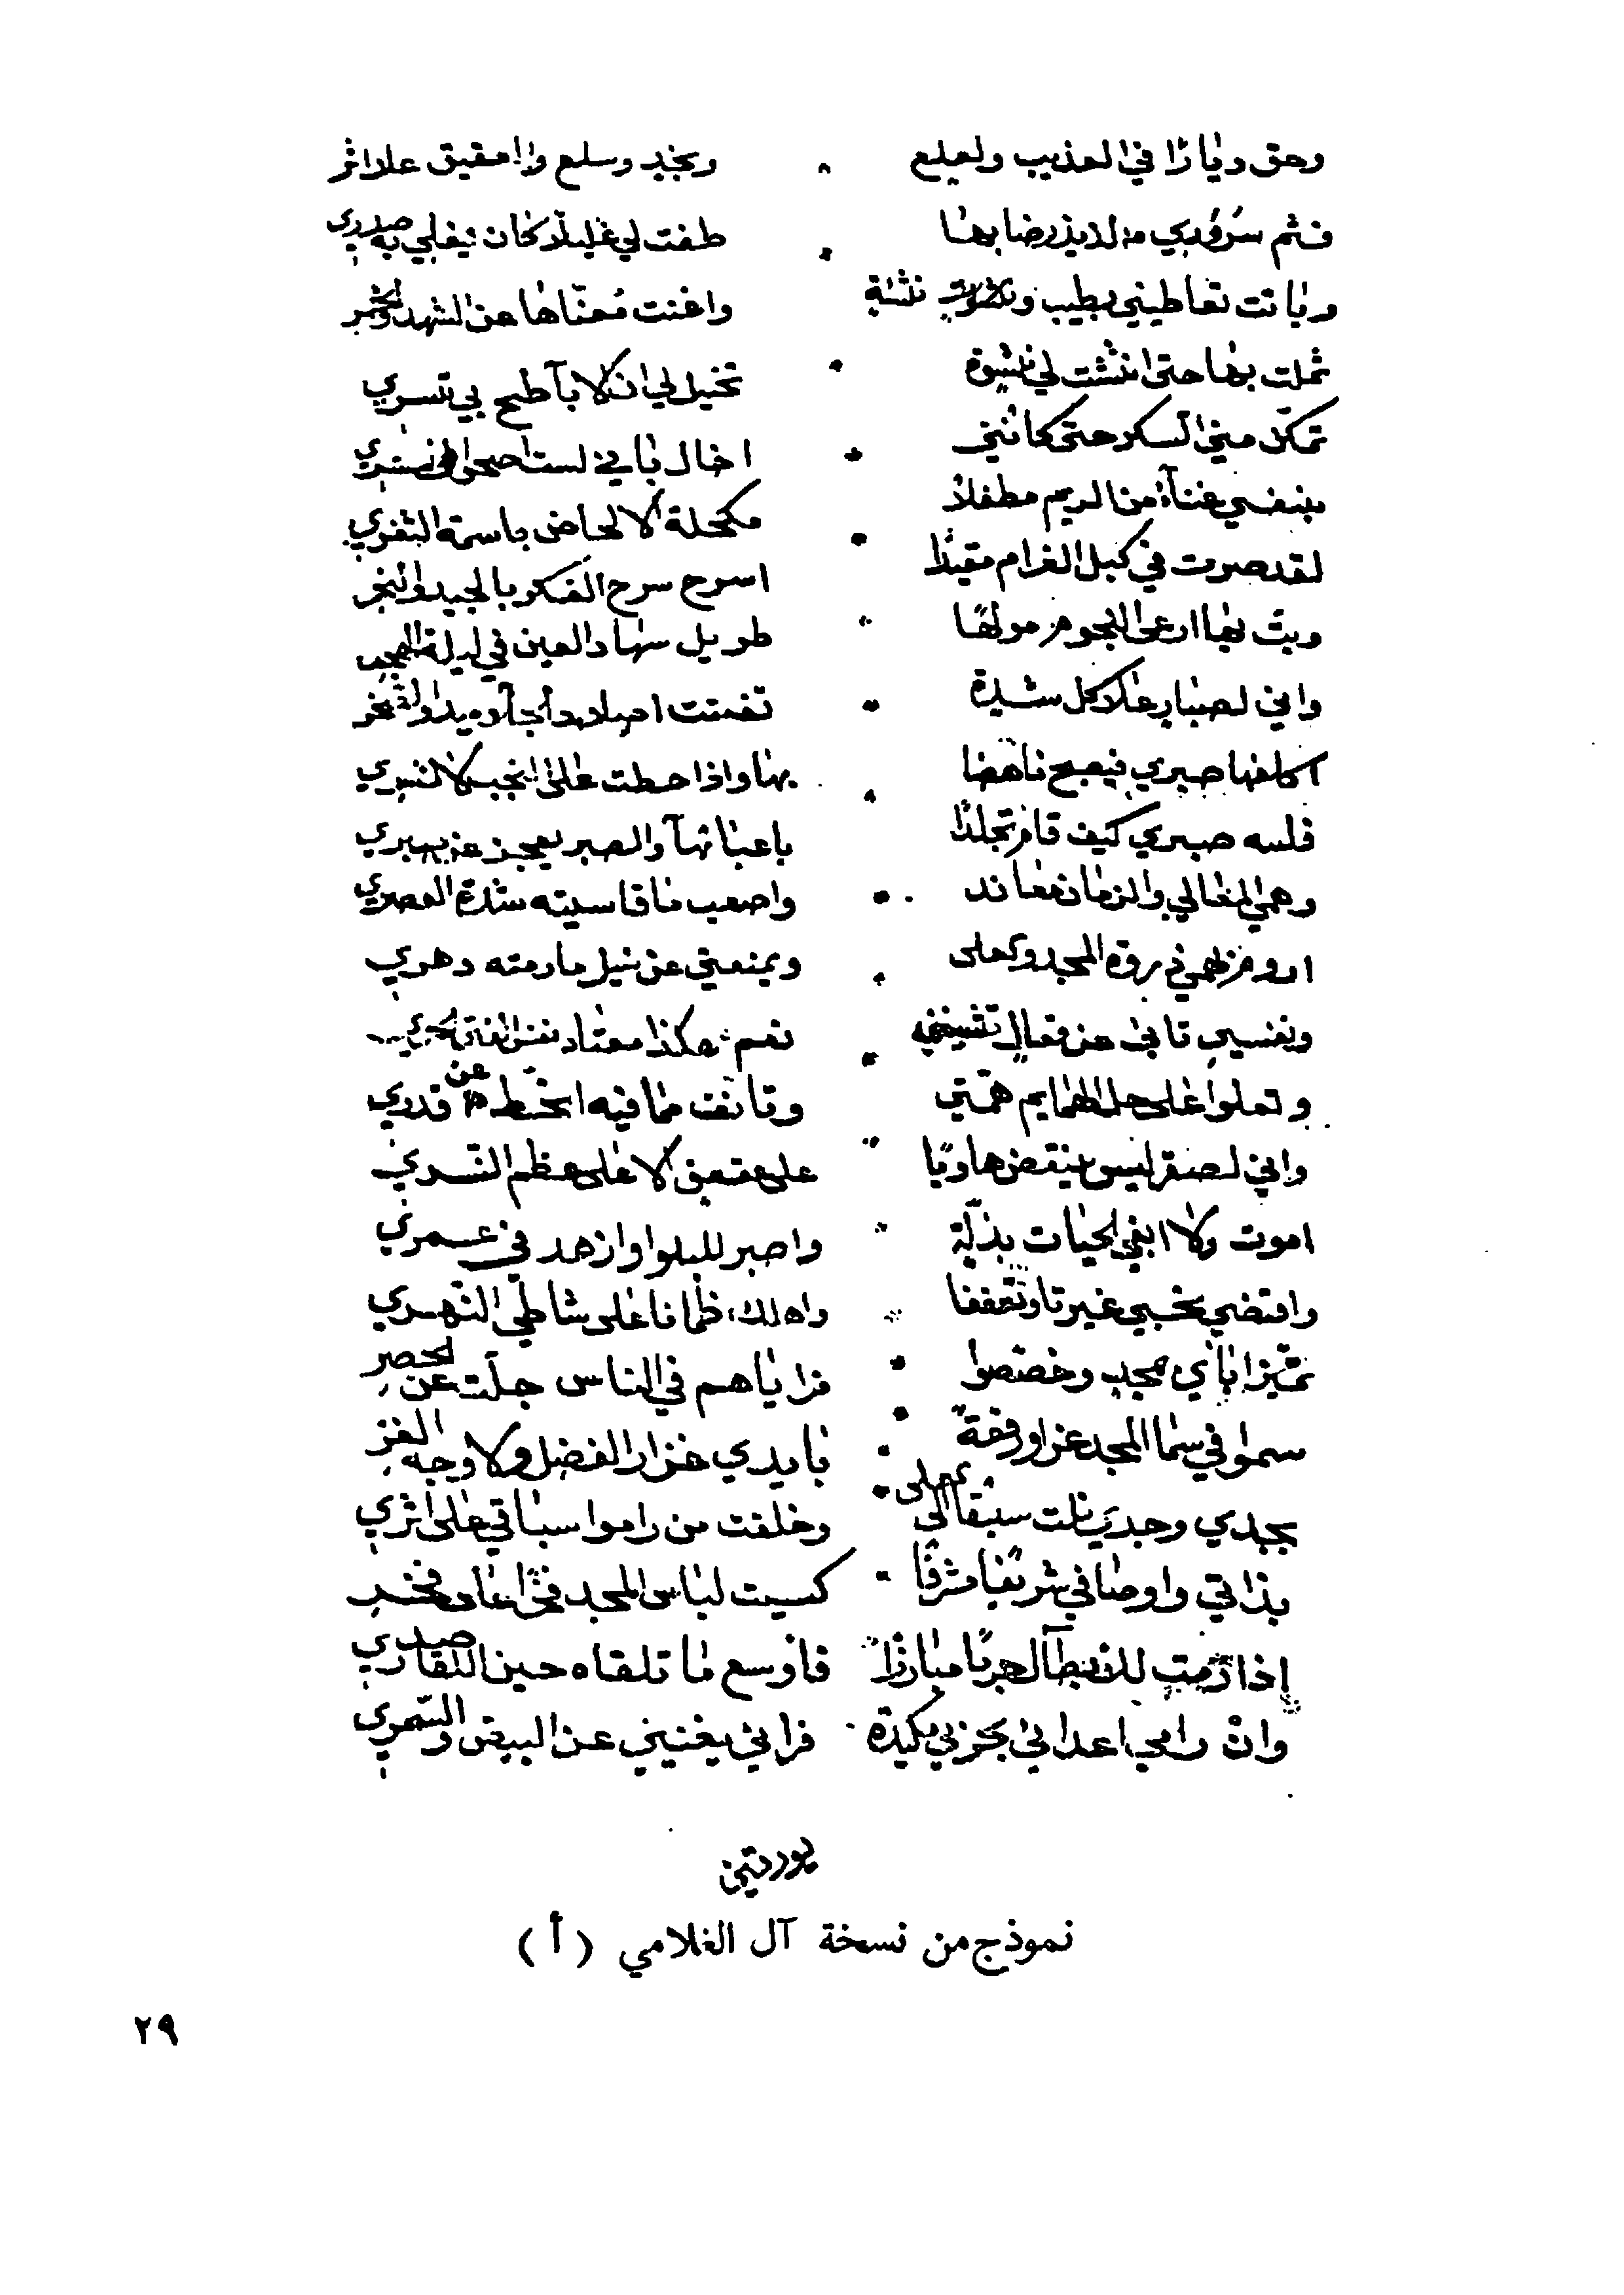 وحق ديارًا في العذيب ولعلع ونجد وسلع والعقيق على اثر
فثم سروري من لذيذ رضابها طفت لي غليلا كان يغلي به صدري
وباتت تعاطيني بطيب نشئة واغنت عن الشهد والخمر
ثملت بها حتى انثنت لي نشوة تخيل لي ان الاباطح بي تسري
تمكن مني السكر حتى كانني اخال باني لست اصحوا من سكري
بنفسي غناة من الريم مطفلا مكحلة الالحاض باسمة الثغري
لقد صرت في كبل الغرام مقيدا اسرح سرح الفكر بالجيد والنحر
وبت بها ارعى النجوم مولها طويل سهاد العين في ليلة الهجر
واني لصبار على كل شدة تفتت اصلاد
اكلفها صبري فيصبح ناهضا بها واذا حطت على النجب لا تسري
فلله صبري كيف قام تجلدا باعبائها والصبر يعجز عن صبري
وهمي المعالي والزمان معاند واصعب ما قاسيته شدة العصري
اروم بهمي ذروة المجد والعلى ويمنعني عن نيل ما رمته دهري
ونفسي تابى عن فعال تشينني نعم هكذا معتاد نفس الفتى الحري
وتعلوا على هام همتي وتانف مما فيه انحط عن قدري
واني لصقر ليس ينقض هاويا على عقعق الا على عظم النسري
اموت ولا ابغي الحيات بذلة واصبر للبلوا وازهد في عمري
واقتضي نحبي غيرتا وتعففا واهلك ظمانا على شاطي النهري
تميز ابائي بمجد وخصصوا مزاياهم في الناس جلت عن الحصر
سموا في سما المجد عزا ورفعة بايدي غزار الفضل ولاوجه الغر
بجدي وجدي نلت سبقا الى العلى وخلفت من راموا سباقي على اثري
بذاتي واوصافي شريفا مشرفا كسيت لباس المجد
إذا رمت للابطال حربا مبارزا فاوسع ما تلقاه حين اللقا صدري
وان رامي اعدائي بحزبي مكيدة فرائي يغنيني عن البيض والسمري
نموذج من نسخة آل الغلامي ( أ )
٢٩